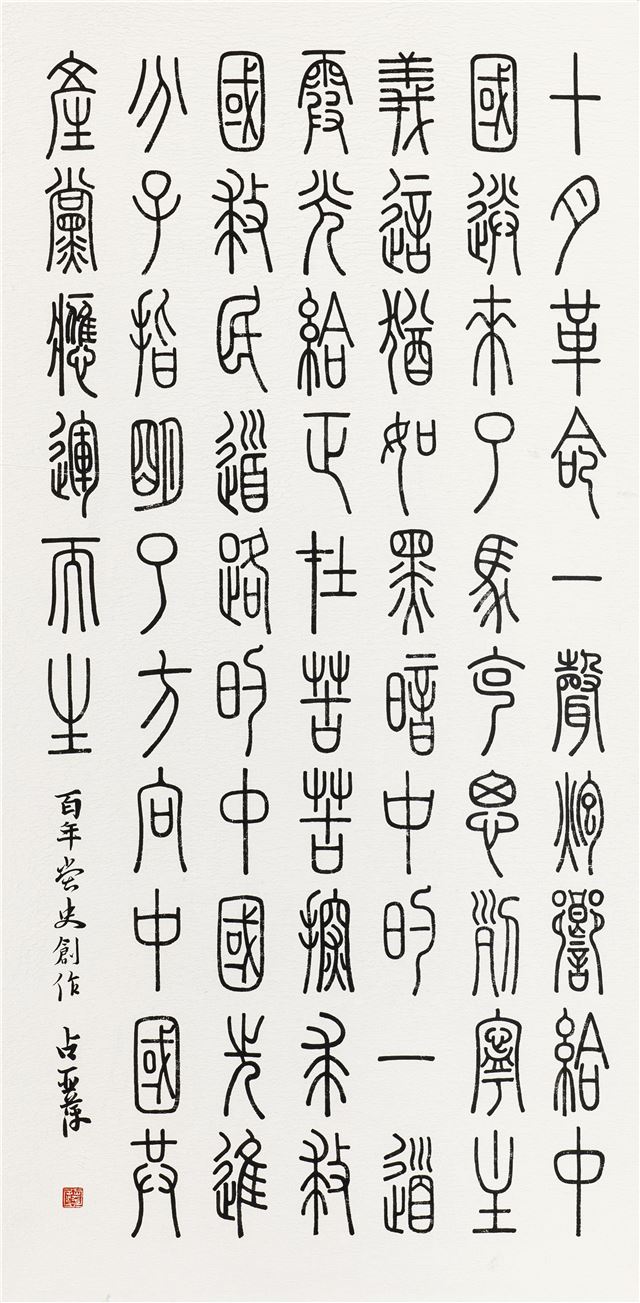 十月革命一聲炮響給中
國送來了馬克思列寧主
義這猶如黑暗中的一道
霞光給正在苦苦探求救
國救民道路的中國先進
分子指明了方向中國共
產黨應運而生
百年党史創作 占